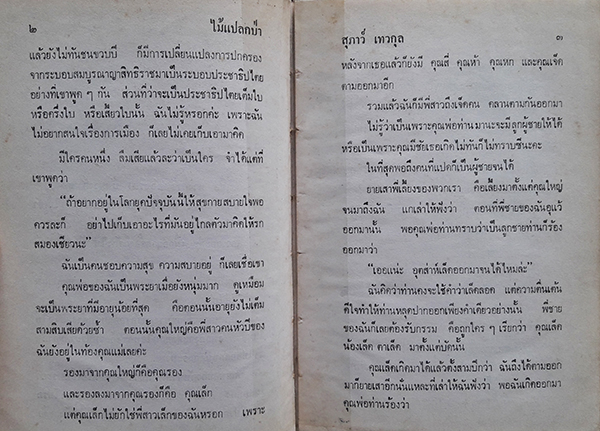 ๒
ไม้แปลกป่า
แล้วยังไม่ทันชนขวบปี ก็มีการเปลี่ยนแปลงการปกครอง
จากระบอบสมบูรณาญาสิทธิราชมาเป็นระบอบประชาธิปไตย
อย่างที่เขาพูด ๆ กัน ส่วนที่ว่าจะเป็นประชาธิปไตยเต็มใบ
หรือครึ่งใบ หรือเสี้ยวใบนั้น ฉันไม่รู้หรอกค่ะ เพราะฉัน
ไม่อยากสนใจเรื่องการเมือง ก็เลยไม่เคยเก็บเอามาคิด
มีใครคนหนึ่ง ลืมเสียแล้วละว่าเป็นใคร จำได้แต่ที่
เขาพูดว่า
“ถ้าอยากอยู่ในโลกยุคปัจจุบันนี้ให้สุขกายสบายใจพอ
ควรละก็ อย่าไปเก็บเอาอะไรที่มันอยู่ไกลตัวมาคิดให้รก
สมองเชียวนะ”
ฉันเป็นคนชอบความสุข ความสบายอยู่ ก็เลยเชื่อเขา
คุณพ่อของฉันเป็นพระยาเมื่อยังหนุ่มมาก ดูเหมือน
จะเป็นพระยาที่มีอายุน้อยที่สุด คือตอนนั้นอายุยังไม่เต็ม
สามสิบเสียด้วยซ้ำ ตอนนั้นคุณใหญ่คือพี่สาวคนหัวปีของ
ฉันยังอยู่ในท้องคุณแม่เลยค่ะ
รองมาจากคุณใหญ่ก็คือคุณรอง
และรองลงมาจากคุณรองก็คือ คุณเล็ก
แต่คุณเล็กไม่ยักใช่พี่สาวเล็กของฉันหรอก เพราะ
สุภาว์ เทวกุล
๓
หลังจากเธอแล้วก็ยังมี คุณสี่ คุณห้า คุณหก และคุณเจ็ด
ตามออกมาอีก
รวมแล้วฉันก็มีพี่สาวถึงเจ็ดคน คลานตามกันออกมา
ไม่รู้ว่าเป็นเพราะคุณพ่อท่านมานะจะมีลูกผู้ชายให้ได้
หรือเป็นเพราะคุณมีชัยเธอเกิดไม่ทันก็ไม่ทราบซีนะคะ
ในที่สุดพอถึงคนที่แปดก็เป็นผู้ชายจนได้
ยายเสาพี่เลี้ยงของพวกเรา คือเลี้ยงมาตั้งแต่คุณใหญ่
จนมาถึงฉัน แกเล่าให้ฟังว่า ตอนที่พี่ชายของฉันอุแว้
ออกมานั้น พอคุณพ่อท่านทราบว่าเป็นลูกชายท่านก็ร้อง
ออกมาว่า
“เออแน่ะ อุตส่าห์เล็ดออกมาจนได้ไหมล่ะ”
ฉันคิดว่าท่านคงจะใช้คำว่าเล็ดลอด แต่ความตื่นเต้น
ดีใจทำให้ท่านหลุดปากออกเพียงคำเดียวอย่างนั้น พี่ชาย
ของฉันก็เลยต้องรับกรรม คือถูกใคร ๆ เรียกว่า คุณเล็ด
น้องเล็ด ตาเล็ด มาตั้งแต่บัดนั้น
คุณเล็ดเกิดมาได้แล้วตั้งสามปีกว่า ฉันถึงได้ตามออก
มาก็ยายเสาอีกนั่นแหละที่เล่าให้ฉันฟังว่า พอฉันเกิดออกมา
คุณพ่อท่านร้องว่า